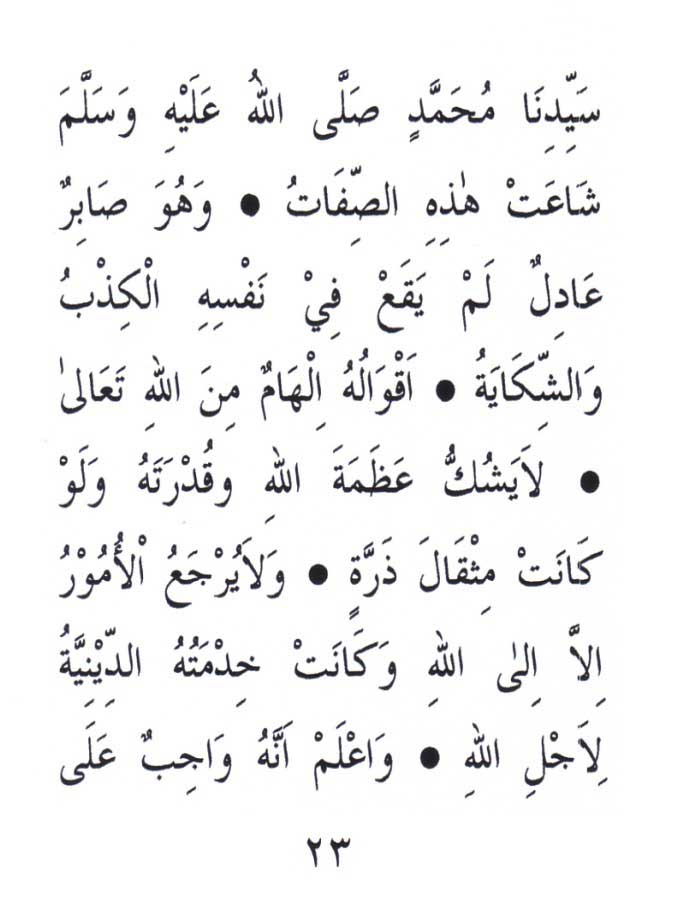 سَيِّدِنَا مُحَمَّدٍ صَلَّى اللهُ عَلَيْهِ وَسَلَّمَ
شَاعَتْ هٰذِهِ الصِّفَاتُ ● وَهُوَ صَابِرٌ
عَادِلٌ لَمْ يَقَعْ فِيْ نَفْسِهِ الْكِذْبُ
وَالشِّكَايَةُ ● اَقْوَالُهُ اِلْهَامٌ مِنَ اللهِ تَعَالىٰ
● لاَيَشُكُّ عَظَمَةَ اللهِ وقُدْرَتَهُ وَلَوْ
كَانَتْ مِثْقَالَ ذَرَّةٍ ● وَلاَيُرْجَعُ الْأُمُوْرُ
اِلاَّ اِلىٰ اللهِ وَكَانَتْ خِدْمَتُهُ الدِّيْنِيَّةُ
لِاَجْلِ اللهِ ● وَاعْلَمْ اَنَّهُ وَاجِبٌ عَلَى
٢٣